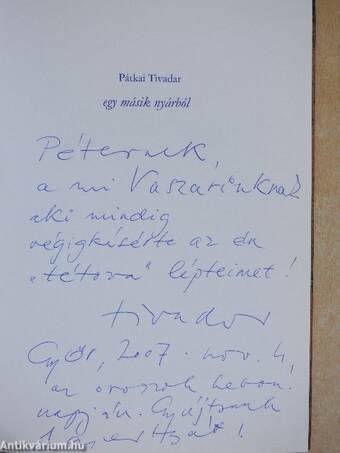 Pátkai Tivadar
egy másik nyárból
Péternek,
a mi Vaszarinknak
aki mindig
végigkísérte az én
„tétova” lépteimet!
tivadar
Győr, 2007. nov. 4,
az oroszok
napján. Gyújtsunk
1
Antikvárium.hu